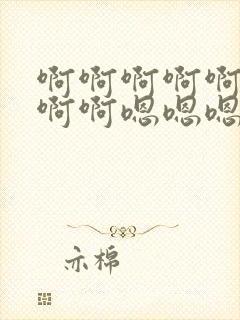 啊啊啊啊啊
啊啊嗯嗯嗯
亦棉